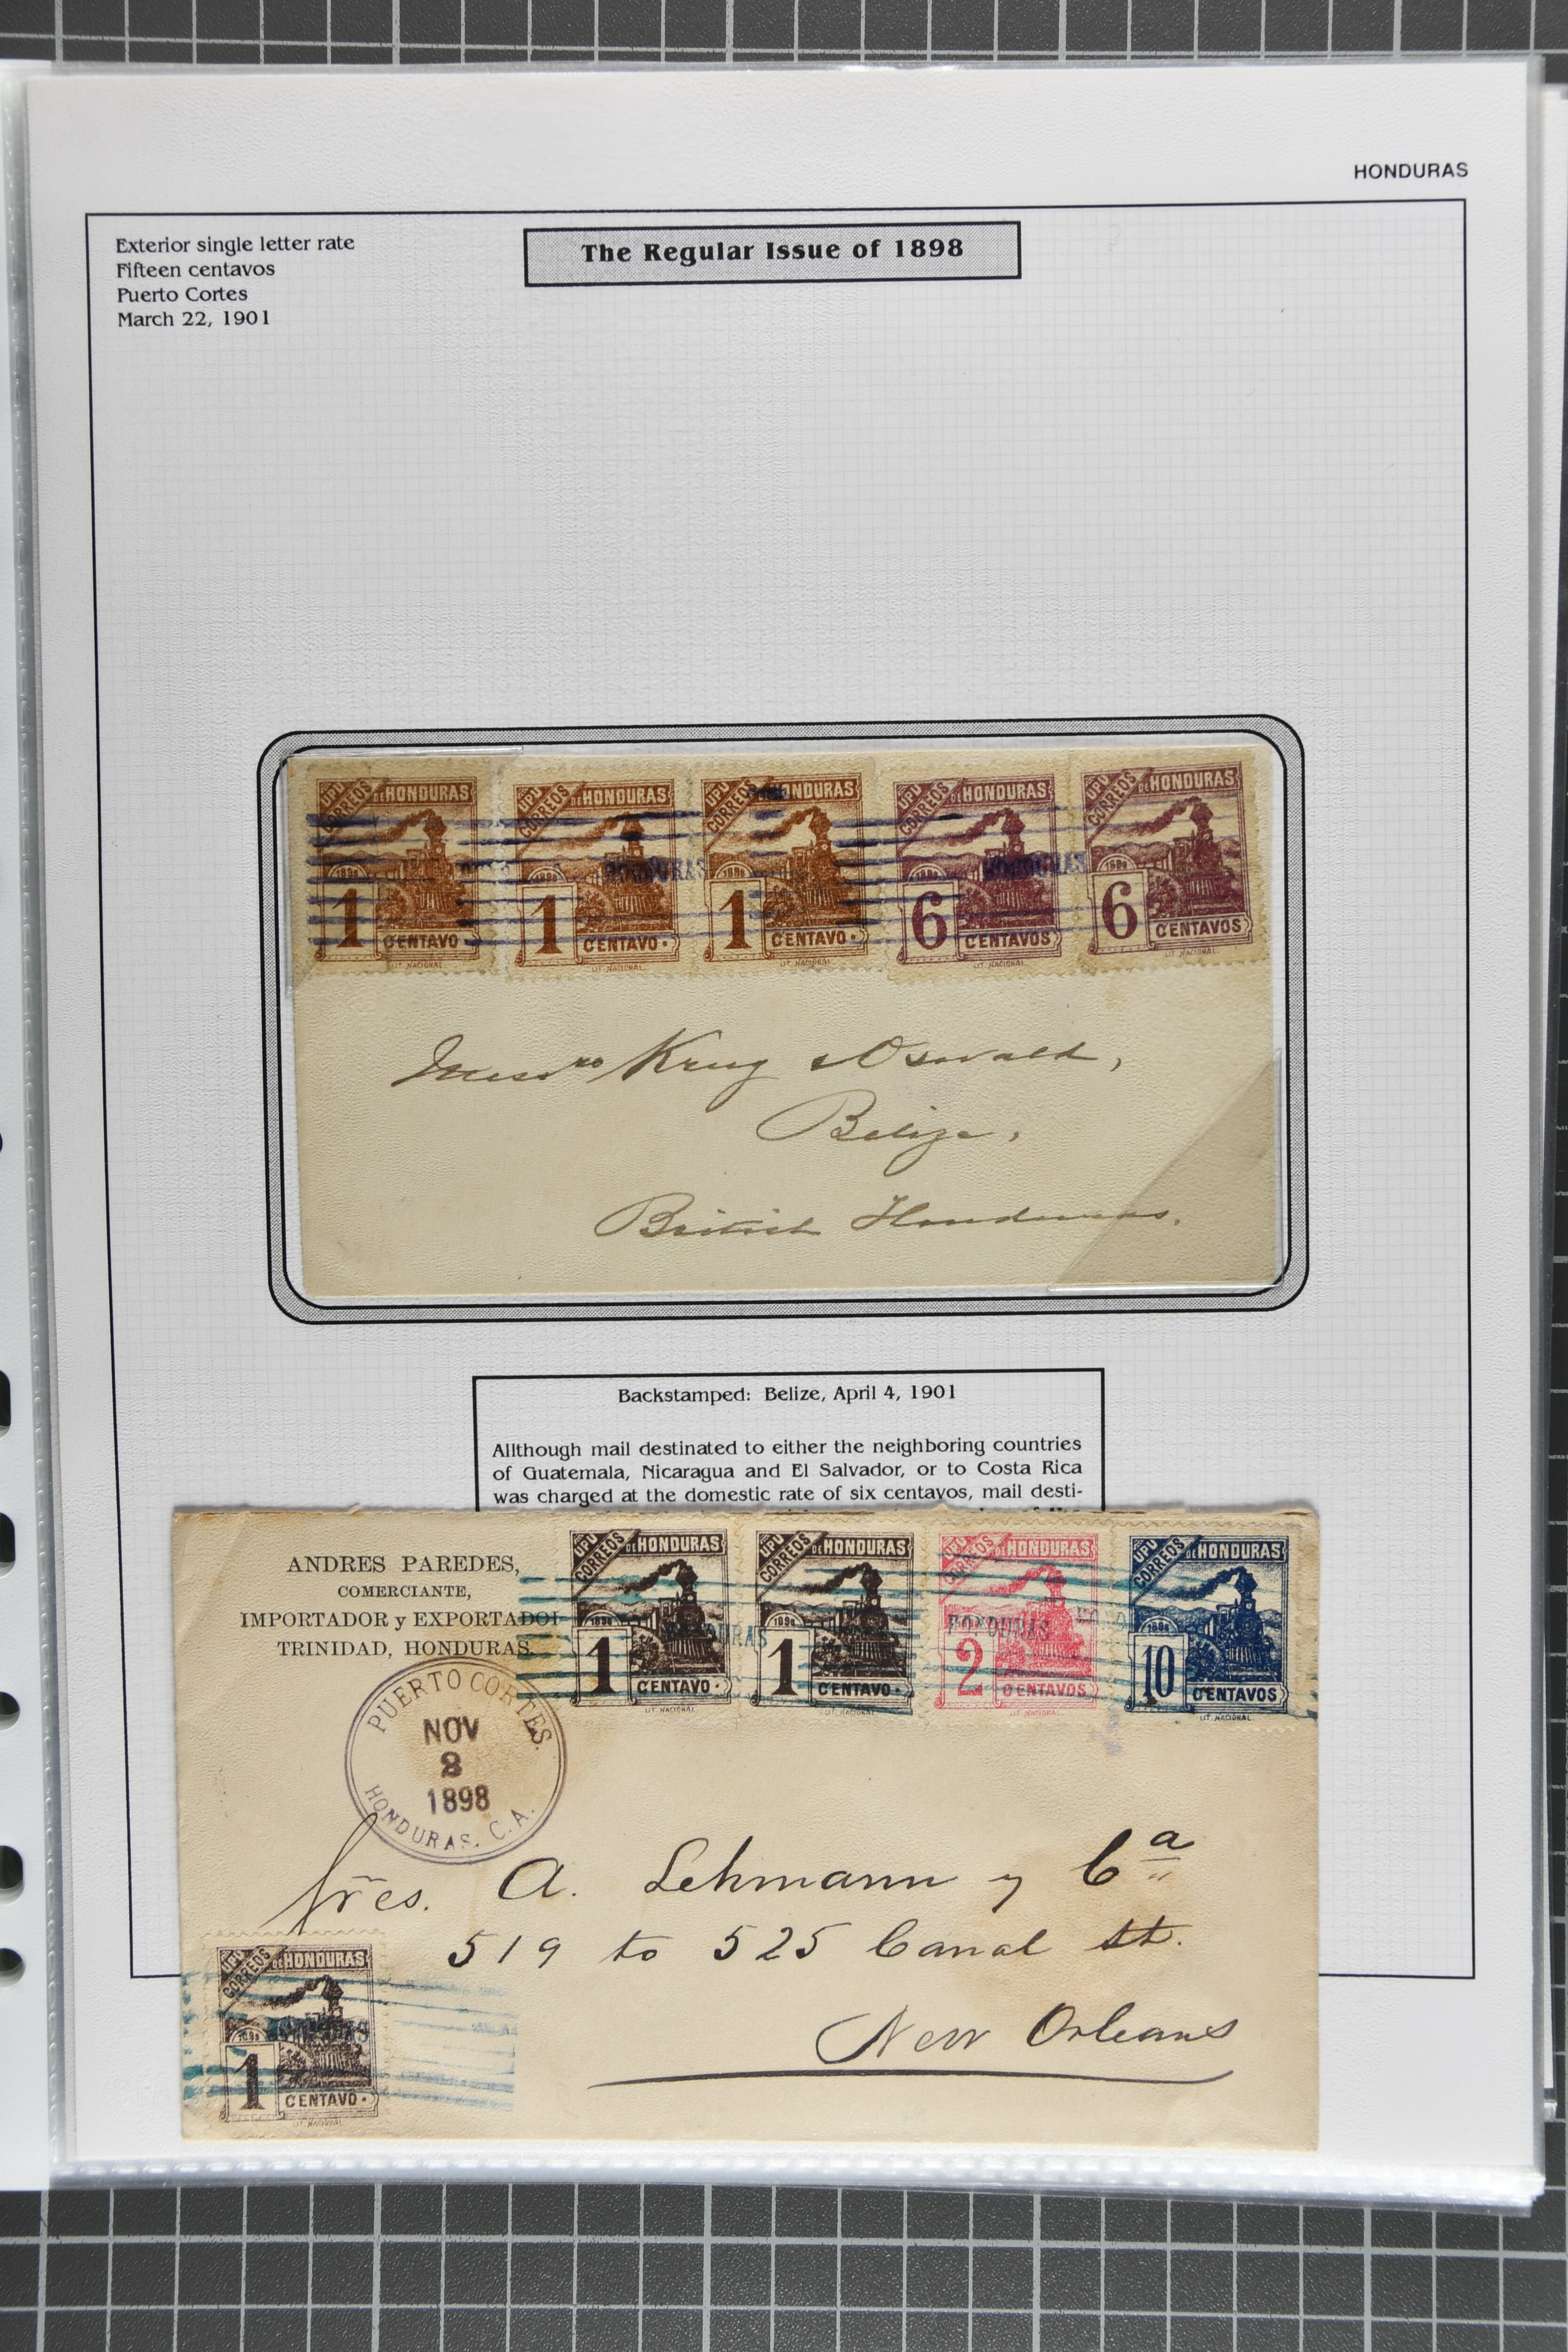 HONDURAS
The Regular Issue of 1898
Exterior single letter rate
Fifteen centavos
Puerto Cortes
March 22, 1901
UPU CORREOS DE HONDURAS 1898 1 CENTAVO LIT. NACIONAL
UPU CORREOS DE HONDURAS 1898 1 CENTAVO LIT. NACIONAL
UPU CORREOS DE HONDURAS 1898 1 CENTAVO LIT. NACIONAL
UPU CORREOS DE HONDURAS 1898 6 CENTAVOS LIT. NACIONAL
UPU CORREOS DE HONDURAS 1898 6 CENTAVOS LIT. NACIONAL
HONDURAS
HONDURAS
Messrs Krug & Oswald,
Belize,
British Honduras.
Backstamped: Belize, April 4, 1901
Allthough mail destinated to either the neighboring countries
of Guatemala, Nicaragua and El Salvador, or to Costa Rica
was charged at the domestic rate of six centavos, mail desti-
ANDRES PAREDES,
COMERCIANTE,
IMPORTADOR y EXPORTADOR
TRINIDAD, HONDURAS.
UPU CORREOS DE HONDURAS 1898 1 CENTAVO LIT. NACIONAL
UPU CORREOS DE HONDURAS 1898 1 CENTAVO LIT. NACIONAL
UPU CORREOS DE HONDURAS 2 CENTAVOS LIT. NACIONAL
UPU CORREOS DE HONDURAS 1898 10 CENTAVOS LIT. NACIONAL
HONDURAS
PUERTO CORTES.
NOV
2
1898
HONDURAS. C.A.
Sres. A. Lehmann y Ca
519 to 525 Canal st.
New Orleans
UPU CORREOS DE HONDURAS 1898 1 CENTAVO LIT. NACIONAL